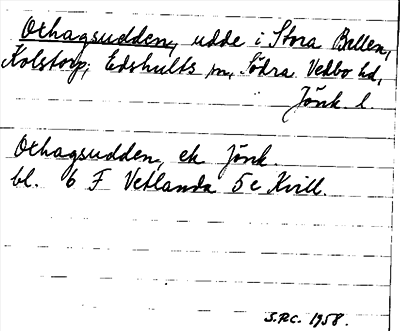 Oxhagsudden, udde i Stora Bellen,
Kolstorp, Edshults sn, Södra Vedbo hd,
Jönk l
Oxhagsudden, ek Jönk.
bl. 6 F Vetlanda 5 c Kvill.
S.P.C. 1958.